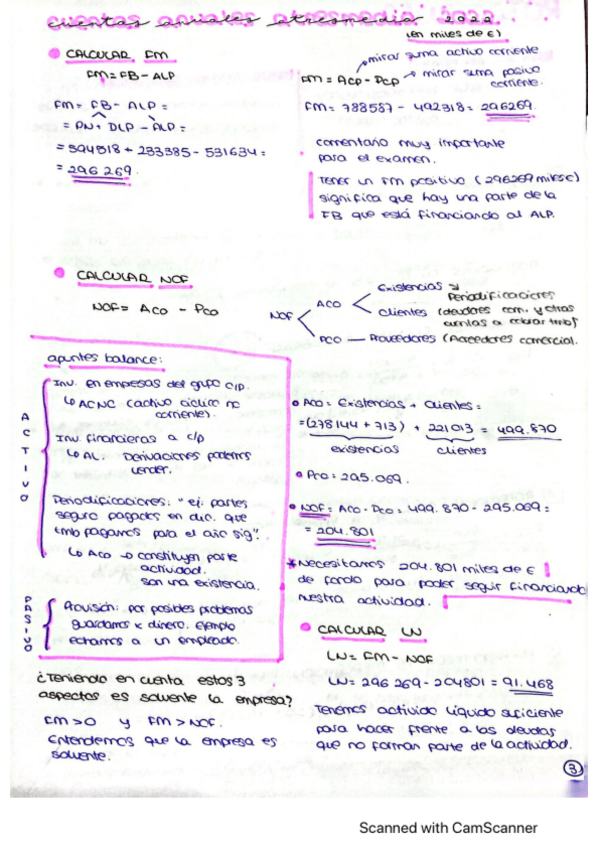 cuentas anuales atresmedia 2022
(en miles de €)
CALCULAR FM
FM = FB - ALP
FM = FB - ALP =
= PN + DLP - ALP =
= 594518 + 233385 - 531634 =
= 296269.
mirar suma activo corriente
FM = ACP - PCP → mirar suma pasivo
corriente.
FM = 788587 - 492318 = 296269.
comentario muy importante
para el examen.
Tener un FM positivo (296269 miles €)
significa que hay una parte de la
FB que está financiando al ALP.
CALCULAR NOF
NOF = ACO - PCO
NOF
ACO
Existencias y
Periodificaciones
Clientes (deudores com. y otras
cuentas a cobrar tmb)
PCO — Proveedores (Acreedores comercial.
apuntes balance:
ACTIVO
Inv. en empresas del grupo c/p.
↳ ACNC (activo cíclico no
corriente).
Inv. financieras a c/p
↳ AL. Derivaciones podemos
vender.
Periodificaciones: "ej. partes
seguro pagados en dic. que
tmb pagamos para el año sig".
↳ ACO → constituyen parte
actividad.
son una existencia.
PASIVO
Provisión: por posibles problemas
guardamos x dinero. ejemplo
echamos a un empleado.
ACO = Existencias + Clientes =
= (278144 + 713) + 221013 = 499.870
existencias clientes
PCO = 295.069.
NOF = ACO - PCO = 499.870 - 295.069 =
= 204.801
* Necesitamos 204.801 miles de €
de fondo para poder seguir financiando
nuestra actividad.
CALCULAR LN
LN = FM - NOF
LN = 296269 - 204801 = 91.468
Tenemos activido líquido suficiente
para hacer frente a las deudas
que no forman parte de la actividad.
¿Teniendo en cuenta estos 3
aspectos es solvente la empresa?
FM > 0 y FM > NOF.
Entendemos que la empresa es
solvente.
3
Scanned with CamScanner